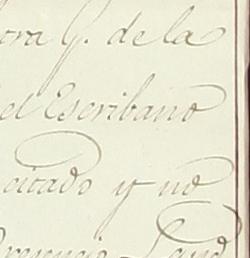 ora G. de la
el Escribano
citado y no